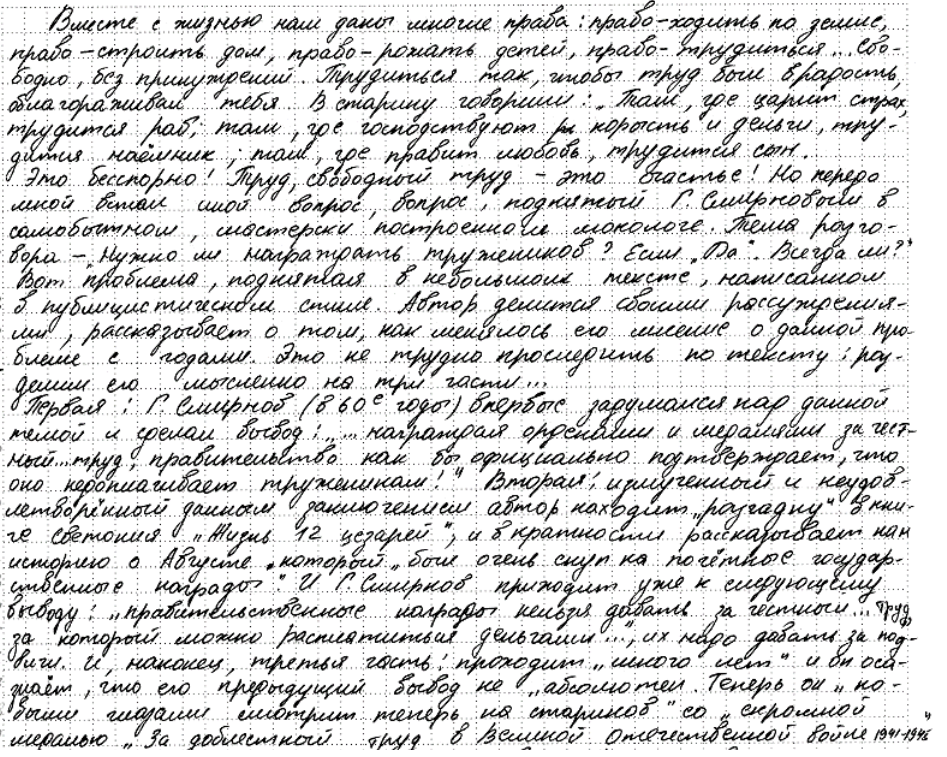 Вместе с жизнью нам даны многие права: право-ходить по земле,
право-строить дом, право-рожать детей, право-трудиться... Сво-
бодно, без принуждений. Трудиться так, чтобы труд был в радость,
облагораживал тебя. В старину говорили: „Там, где царит страх,
трудится раб; там, где господствуют корысть и деньги, тру-
дится наёмник; там, где правит любовь, трудится сын.
Это бесспорно! Труд, свободный труд - это счастье! Но передо
мной встал иной вопрос, вопрос, поднятый Г. Смирновым в
самобытном, мастерски построенном монологе. Тема разго-
вора - „Нужно ли награждать тружеников? Если „Да". Всегда ли?"
Вот проблема, поднятая в небольшом тексте, написанном
в публицистическом стиле. Автор делится своими рассуждения-
ми, рассказывает о том, как менялось его мнение о данной про-
блеме с годами. Это не трудно проследить по тексту: раз-
делим его мысленно на три части...
Первая: Г. Смирнов (в 60е годы) впервые задумался над данной
темой и сделал вывод: „... награждая орденами и медалями за чест-
ный... труд, правительство как бы официально подтверждает, что
оно недоплачивает труженикам!" Вторая: измученный и неудов-
летворённый данным заключением автор находит „разгадку" в кни-
ге Светония „Жизнь 12 цезарей", и вкратности рассказывает нам
историю о Августе „который „был очень скуп на почётные государ-
ственные награды". И Г. Смирнов приходит уже к следующему
выводу: „правительственные награды нельзя давать за честный... труд,
за который можно расплатиться деньгами...", их надо давать за под-
виги. И, наконец, третья часть: проходит „много лет" и он осо-
знаёт, что его предыдущий вывод не „абсолютен. Теперь он „но-
выми глазами смотрит теперь на стариков" со „скромной
медалью „За доблестный труд в Великой Отечественной войне 1941-1945"